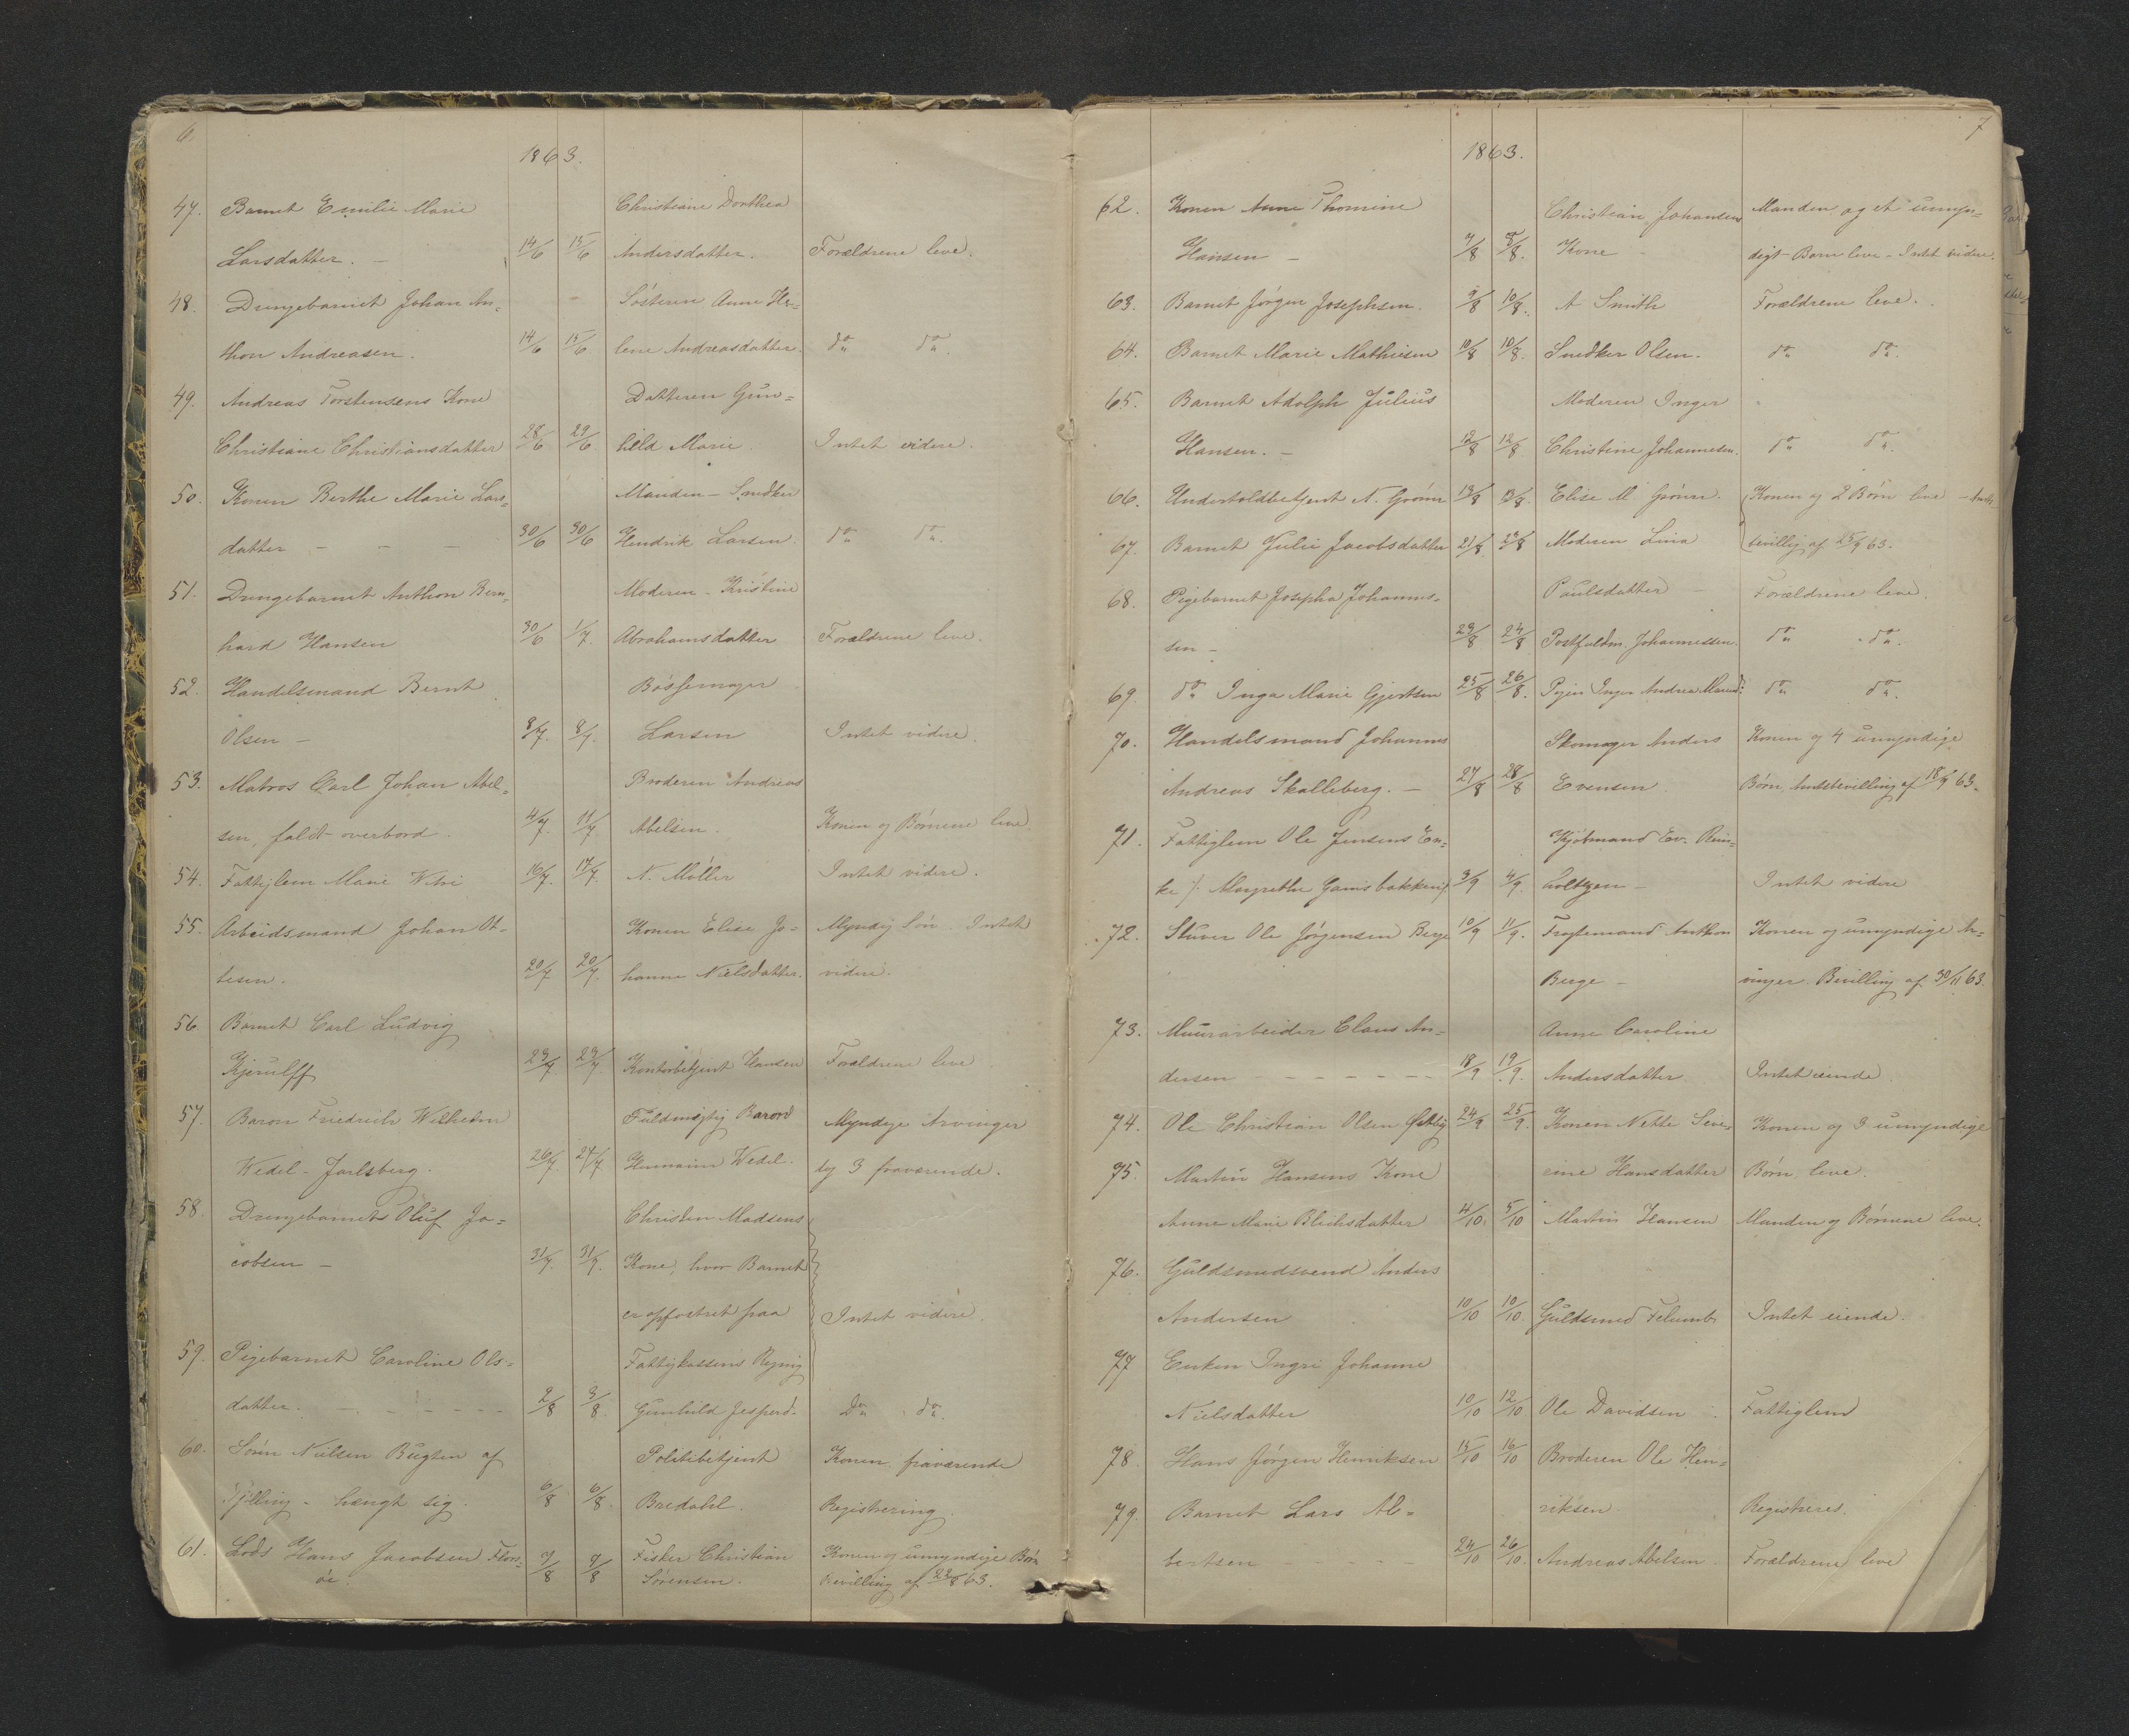 6.
1863.
47. Barnet Emilie Marie Christiane Dorthea
Larsdatter. – 14/6 15/6 Andersdatter. Forældrene leve.
48. Drengebarnet Johan An- Søsteren Anne He-
thon Andreasen. 14/6 15/6 lene Andreasdatter. do do.
49. Andreas Torstensens Kone Datteren Gun=
Christiane Christiansdatter 28/6 29/6 hild Marie Intet videre.
50. Konen Berthe Marie Lars- Manden – Snedker
datter – – – 30/6 30/6 Hendrik Larsen. do do.
51. Drengebarnet Anthon Bern- Moderen – Kristine
hard Hansen 30/6 1/7. Abrahamsdatter Forældrene leve.
52. Handelsmand Bernt Bøssemager
Olsen – 8/7. 8/7. Larsen Intet videre.
53. Matros Carl Johan Abel- Broderen Andreas
sen, faldt overbord. 4/7. 11/7. Abelsen. Konen og Børnene leve.
54. Fattiglem Marie 16/7. 17/7. N. Møller Intet videre.
55. Arbeidsmand Johan Ot- Konen Elise Jo- Myndig Søn. Intet
tesen. 20/7 20/7. hanne Nielsdatter. videre.
56. Barnet Carl Ludvig
Kjerulff 23/7. 23/7. Kontorbetjent Hansen Forældrene leve
57. Baron Friedrich Wilhelm Fuldmægtig Baron Myndige Arvinger
Wedel-Jarlsberg. 26/7. 27/7 Wedel. 3 fraværende.
58. Drengebarnet Oluf Ja= Christen Madsens
cobsen – 31/7. 31/7. Kone, hvor Barnet
er opfostret paa Intet videre.
59. Pigebarnet Caroline Ols= Fattigkassens Regning
datter. – – – – 2/8 3/8. Gunhild Jespersd. Do do.
60. Søren Nielsen Bugten af Politibetjent Konen fraværende
Tjølling – hængt sig. 6/8 6/8. Bredahl. Registrering.
61. Lods Hans Jacobsen Flors- 7/8 9/8 Fisker Christian Konen og umyndige Børn
øe. Sørensen. Bevilling af 22/8 63.
7
1863.
62. Konen Anne Thomine Christian Johansens Manden og et umyn-
Hansen – 7/8 8/8. Kone – digt Barn leve – Intet videre.
63. Barnet Jørgen Josephsen. 9/8 10/8. A Smith Forældrene leve.
64. Barnet Marie Mathisen 10/8 10/8. Snedker Olsen. do do.
65. Barnet Adolph Julius Moderen Inger
Hansen. – 12/8 12/8 Christine Johannesen. do do.
66. Undertoldbetjent N. Grønn 13/8 13/8. Elise M Grønn. Konen og 2 Børn leve – Amts
67. Barnet Julie Jacobsdatter 21/8 23/8 Moderen Lina bevillig af 25/9 63.
68. Pigebarnet Josepha Johannes- Paulsdatter – Forældrene leve.
sen – 23/8 24/8 Postfuldm. Johannessen. do do.
69. do Inga Marie Gjertsen 25/8 26/8. Pigen Inger Andrea do do.
70. Handelsmand Johannes Skomager Anders Konen og 4 umyndige
Andreas Skalleberg. – 27/8 28/8 Evensen Børn, Amtsbevilling af 18/9 63.
71. Fattiglem Ole Jensens En- Kjøbmand Ev. Rein-
ke /: Margrethe Gamsbakken:/ 3/9 4/9. holtzen – Intet videre
72. Stuver Ole Jørgensen Berge 10/9 11/9. Fragtemand Anthon Konen og umyndige Ar-
Berge – vinger. Bevilling af 30/11 63.
73. Muurarbeider Claus An- Anne Caroline
dersen – – – – – 18/9 19/9. Andersdatter Intet eiende
74. Ole Christian Olsen 24/9 25/9. Konen Nette Seve- Konen og 3 umyndige
75. Martin Hansens Kone rine Hansdatter Børn leve.
Anne Marie Blichsdatter 4/10. 5/10 Martin Hansen Manden og Børnene leve.
76. Guldsmedsvend Anders
Andersen 10/10 10/10. Guldsmed Felumb Intet eiende.
77 Enken Ingri Johanne
Nielsdatter 10/10 12/10 Ole Davidsen Fattiglem
78. Hans Jørgen Henriksen 15/10 16/10 Broderen Ole Hen-
79. Barnet Lars Al= riksen Registreres.
bertsen – – – – 24/10 26/10. Andreas Abelsen Forældrene leve